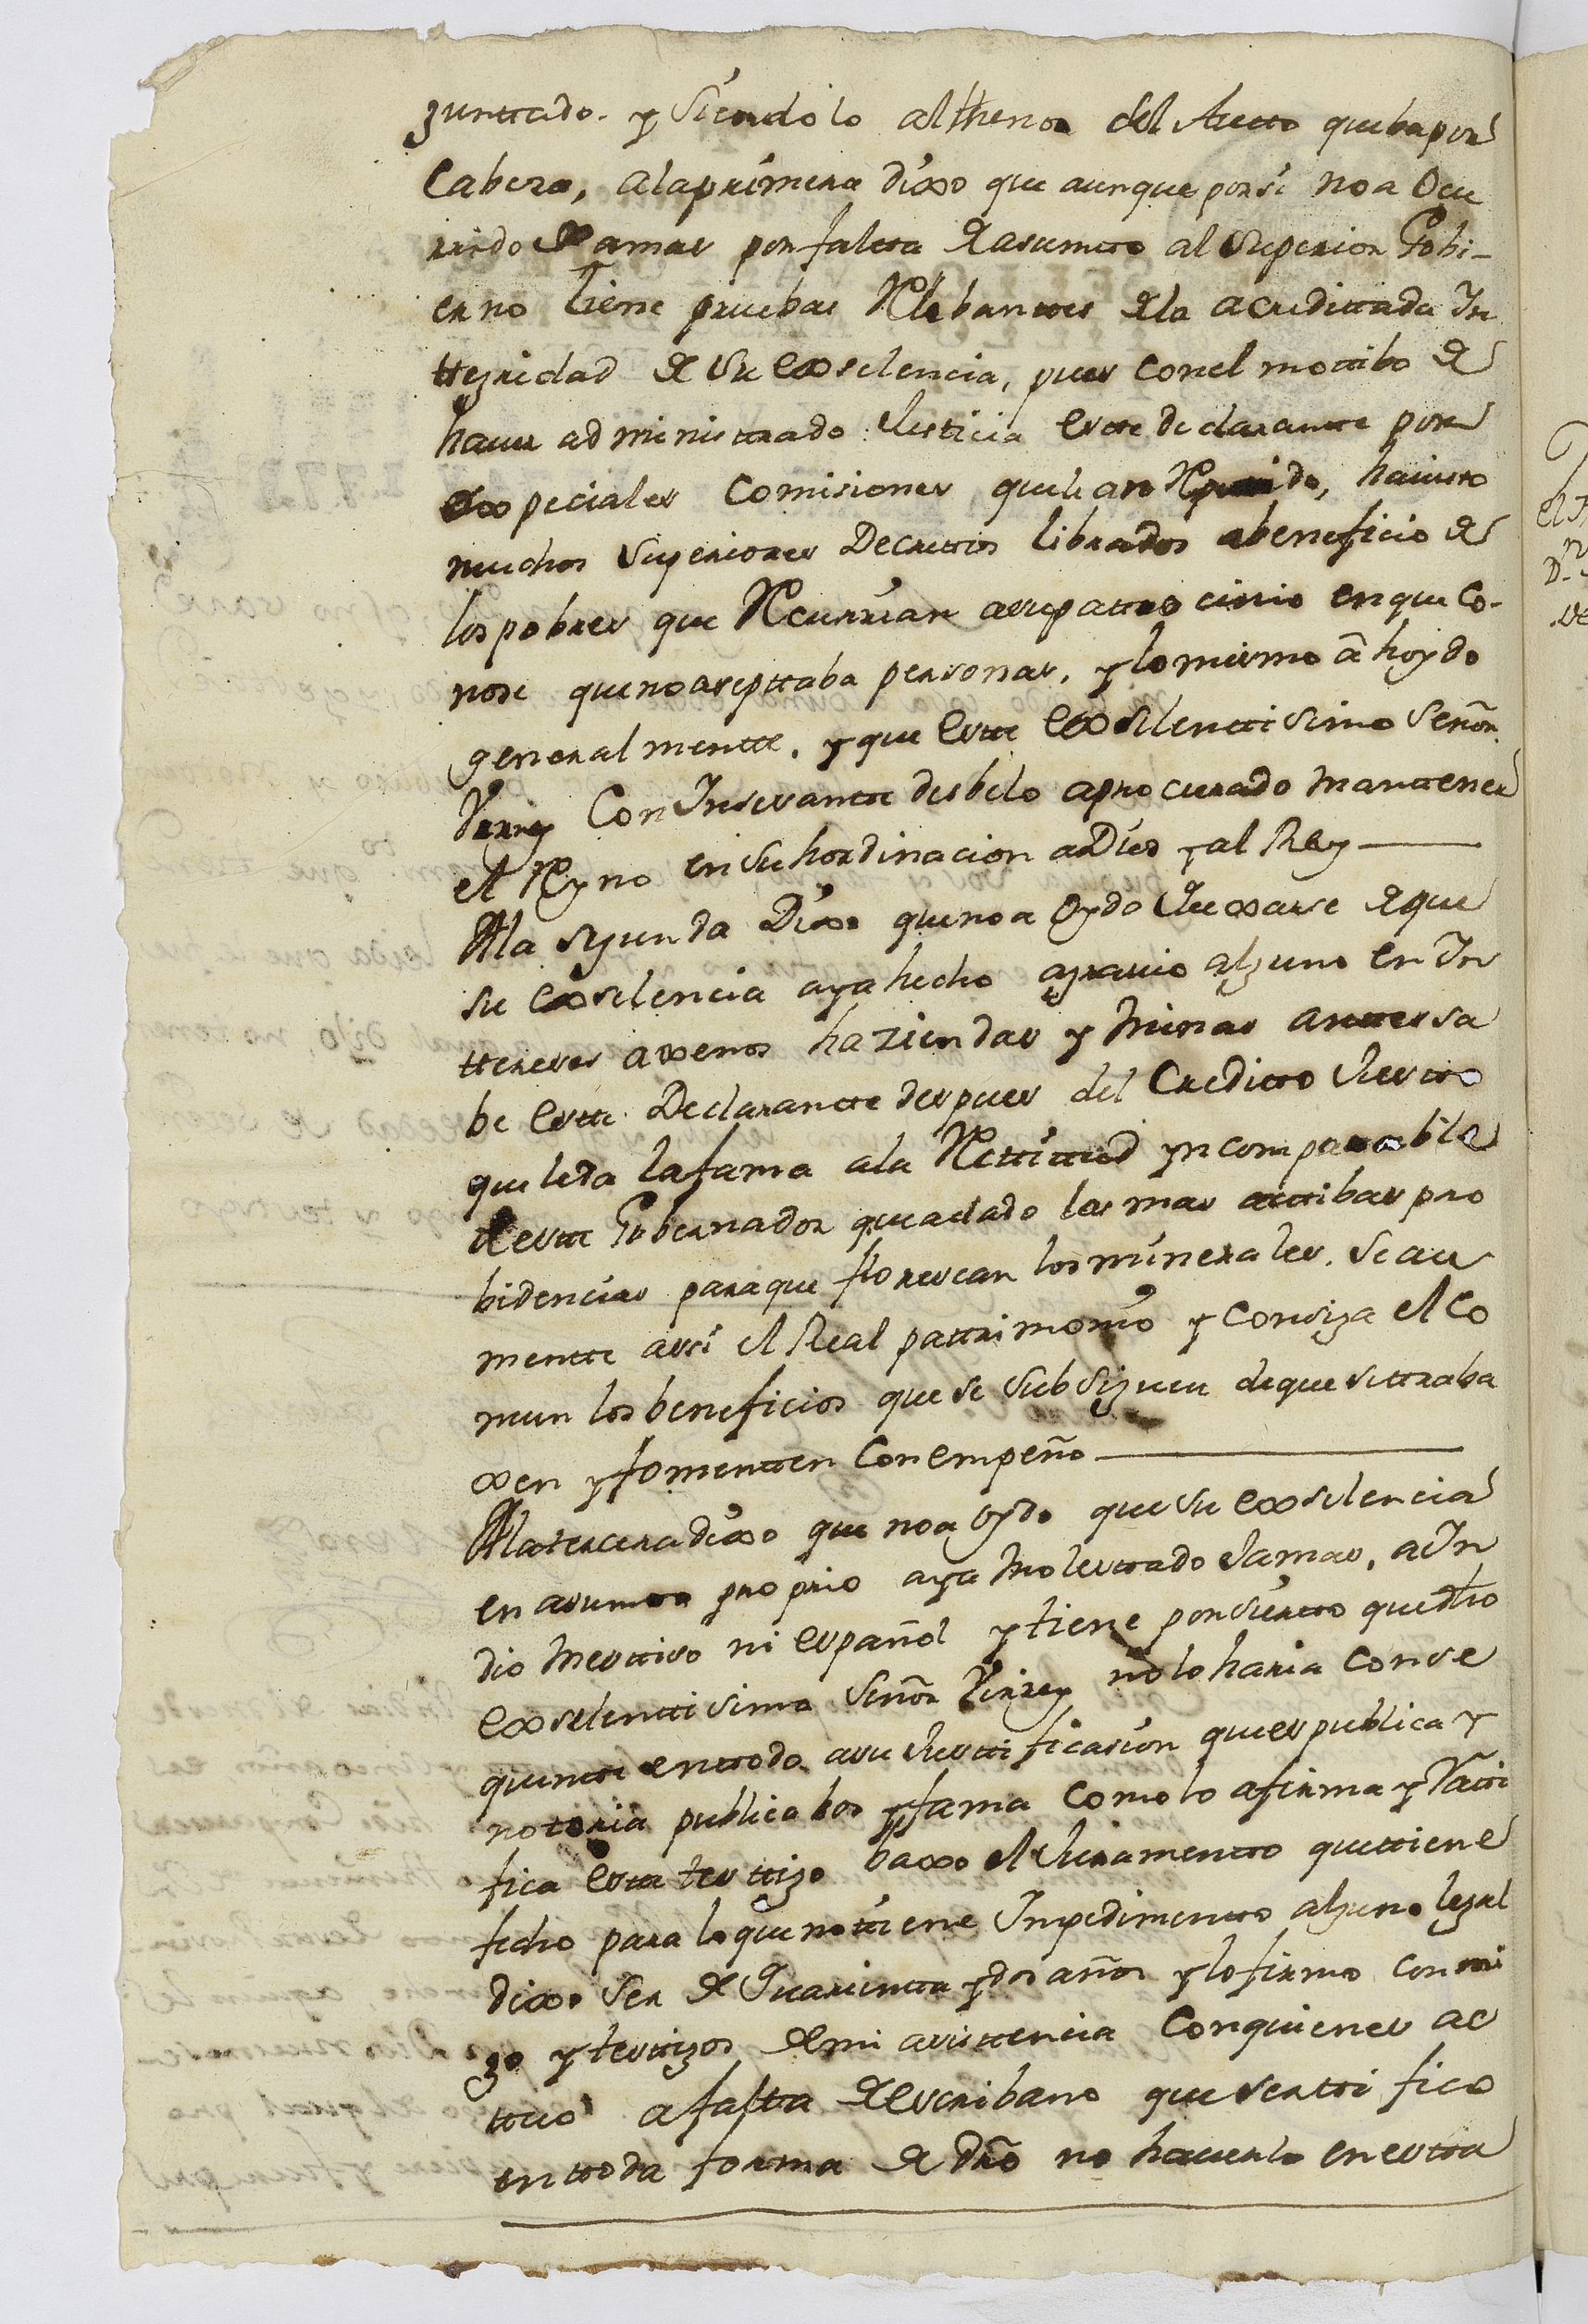 guntado. y siendolo al thenor del Autto que ba por
Cabeza, a la primera dixo que aunque por si no a Ocu
rrido Jamas por falta de asumtto al Superior Gobi-
erno tiene pruebas Relebanttes de la acredittada In
ttegridad de su exselencia, pues con el mottibo de
haver administrado Justicia estte declarantte por
expeciales Comisiones que le an  havisto
muchos Superiores Decrettos librados a beneficio de
los pobres que Recurrian a su pattrocinio en que co-
nose que no aseptaba personas, y lo mismo a hoydo
generalmentte, y que estte exselenttisimo Señor
Virrey Con Insesantte desbelo a procurado manttener
el Reyno en subordinacion a Dios y al Rey
A la segunda Dixo que no a Oydo Quexarse de que
su exselencia aya hecho agravio alguno en In
ttereses axenos haziendas y Minas anttes sa
be estte Declarantte despues del Creditto Justto
que le da la fama a la Rectittud yncomparable
de estte Gobernador que a dado las mas acttibas pro
bidencias para que florescan los minerales. Se au
mentte assi el Real pattrimonio y consiga el Co
mun los beneficios que se subsiguen de que se ttraba
xen y fomentten con empeño
A la tercera dixo que no a oydo que su exselencia
en asumtto proprio aya Molesttado Jamas, a In
dio Mesttiso ni español y tiene por sierto que dho
exselenttisimo Señor Virrey no lo haria Conse
quentte en ttodo a su Justtificasion que es publica y
notoria publica bos y fama Como lo afirma y Ratti
fica estte testtigo baxo el Juramentto que ttiene
fecho para lo que no ttiene Inpedimentto alguno legal
dixo ser de Quarentta y dos años y lo firmo conmi
go y testtigos de mi asisttencia Con quienes ac
ttuo a falta de escribano que serttifico
en ttoda forma de dro no haverlo en estta